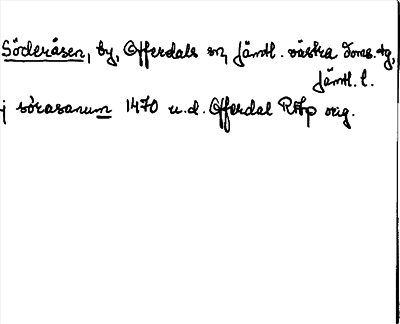 Söderåsen, by, Offerdals sn, Jämtl. västra doms.tg,
Jämtl. l.
j sörasanum 1470 u.d. Offerdal RAp orig.